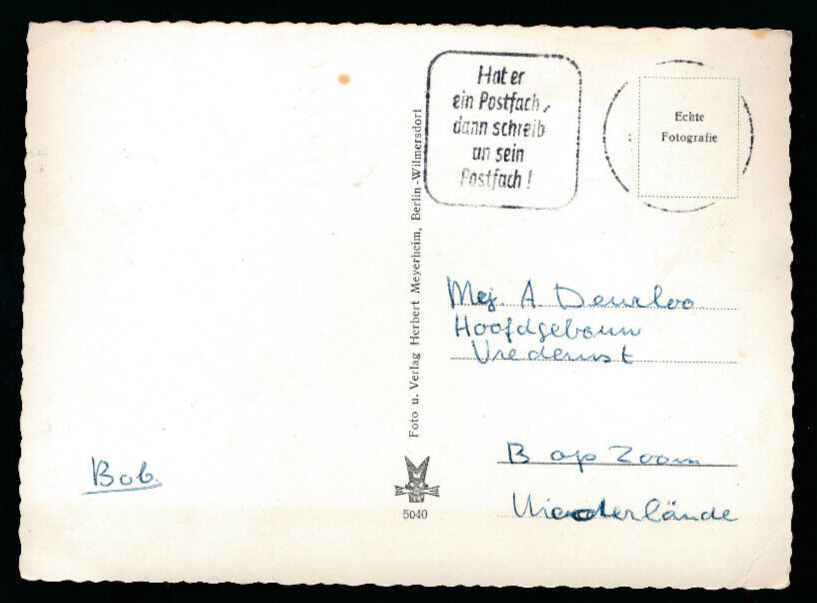 Hat er
ein Postfach,
dann schreib
an sein
Postfach!
Echte
Fotografie
Foto u. Verlag Herbert Meyerheim, Berlin-Wilmersdorf
Mej. A Deurloo
Hoofdgebouw
Vrederust
B op Zoom
Niederlände
Bob.
5040